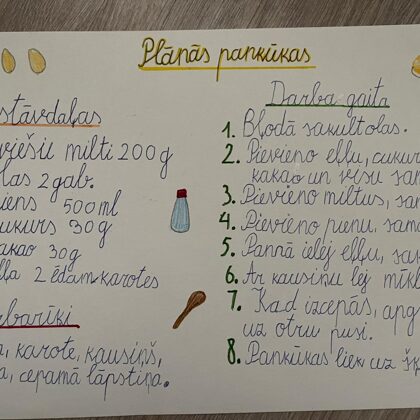 Plānās pankūkas
stāvdaļas
viešu milti 200 g
las 2 gab.
iens 500 ml
ukurs 30 g
akao 30 g
ļļa 2 ēdamkarotes
rbarīki
a, karote, kausiņš,
a, cepamā lāpstiņa.
Darba gaita
1. Bļodā sakult olas.
2. Pievieno eļļu, cukur
kakao un visu sam
3. Pievieno miltus, sam
4. Pievieno pienu, sama
5. Pannā ielej eļļu, sak
6. Ar kausiņu lej mīkl
7. Kad izcepās, apg
uz otru pusi.
8. Pankūkas liek uz šķ